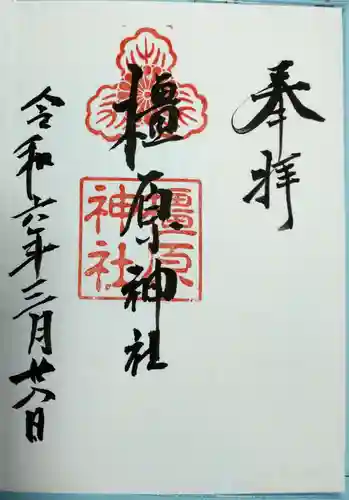 奉拝
橿原神社
橿原
神社
令和六年三月廿八日